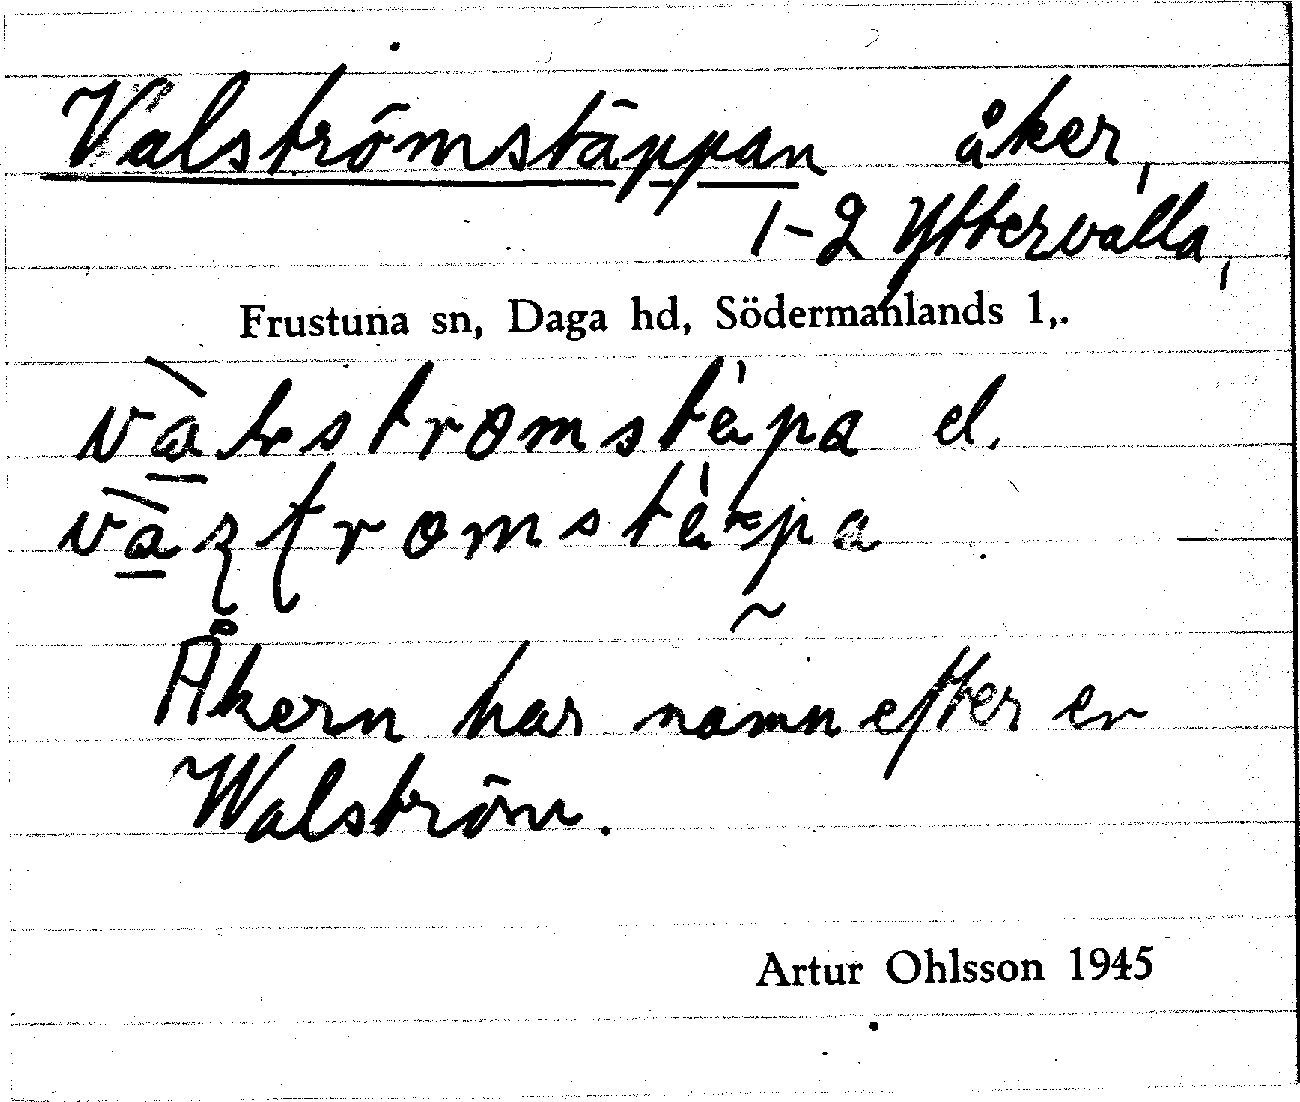 Valströmstäppan åker,
1-2 Yttervalla,
Frustuna sn, Daga hd, Södermanlands l,.
el.
Åkern har namn efter en
Walström.
Artur Ohlsson 1945